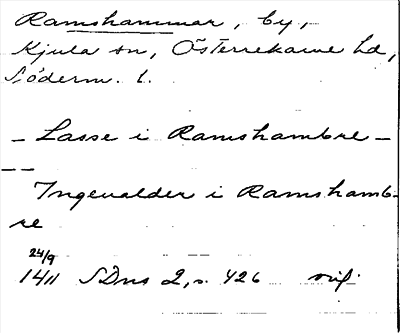 Ramshammar, by,
Kjula sn, Österrekarne hd,
Söderm. l.
— Lasse i Ramshambre —
— —
Ingeualder i Ramshamb-
re
24/9
1411 SDns 2, s. 426 orig.